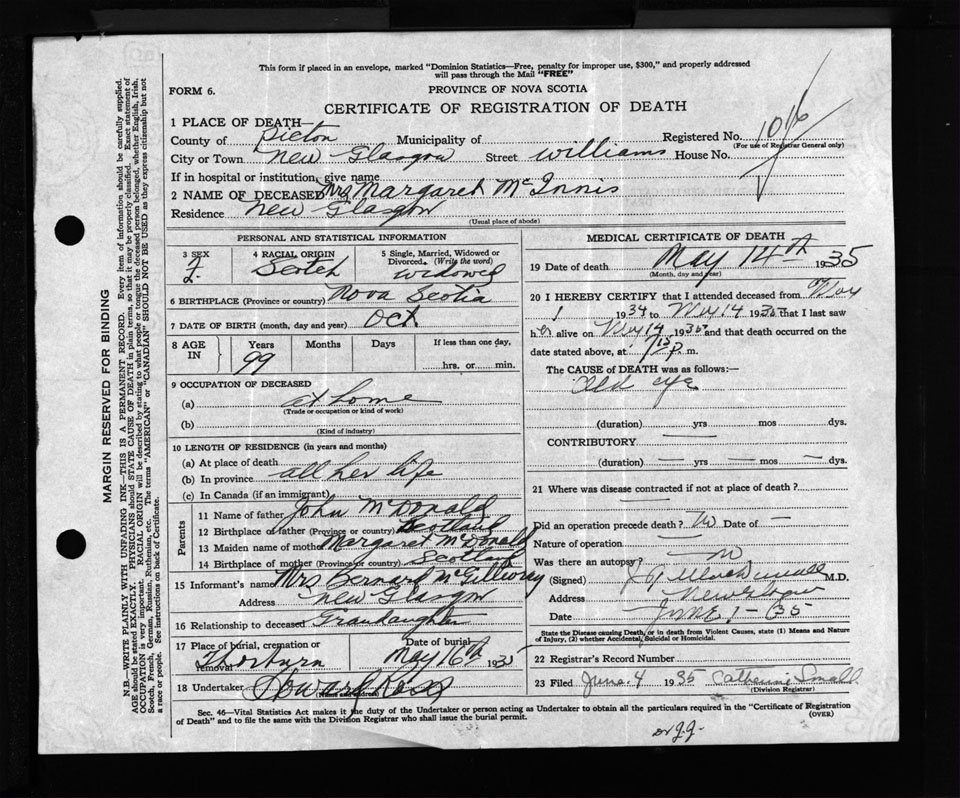 This form if placed in an envelope, marked "Dominion Statistics—Free, penalty for improper use, $300," and properly addressed
will pass through the Mail "FREE"
FORM 6.
PROVINCE OF NOVA SCOTIA
CERTIFICATE OF REGISTRATION OF DEATH
1 PLACE OF DEATH—
County of Pictou Municipality of Registered No. 1016
(For use of Registrar General only)
City or Town New Glasgow Street Williams House No.
If in hospital or institution, give name
2 NAME OF DECEASED Mrs Margaret McInnis
Residence New Glasgow
(Usual place of abode)
PERSONAL AND STATISTICAL INFORMATION
3 SEX F. 4 RACIAL ORIGIN Scotch 5 Single, Married, Widowed or Divorced (Write the word) widowed
6 BIRTHPLACE (Province or country) Nova Scotia
7 DATE OF BIRTH (month, day and year) Oct
8 AGE IN Years 99 Months Days If less than one day, hrs. or min.
9 OCCUPATION OF DECEASED
(a) at home
(Trade or occupation or kind of work)
(b)
(Kind of industry)
10 LENGTH OF RESIDENCE (in years and months)
(a) At place of death
(b) In province all her life
(c) In Canada (if an immigrant)
Parents
11 Name of father John McDonald
12 Birthplace of father (Province or country) Scotland
13 Maiden name of mother Margaret McDonald
14 Birthplace of mother (Province or country) Scotland
15 Informant's name Mrs Bernard McGillivray
Address New Glasgow
16 Relationship to deceased Grandaughter
17 Place of burial, cremation or removal Thorburn Date of burial May 16th 1935
18 Undertaker Howard Ross
MEDICAL CERTIFICATE OF DEATH
19 Date of death May 14th 1935
(Month, day and year)
20 I HEREBY CERTIFY that I attended deceased from Nov
1 1934 to May 14 1935 that I last saw
her alive on May 14 1935 and that death occurred on
date stated above, at 7 15 p. m.
The CAUSE of DEATH was as follows:—
Old age
(duration) yrs mos dys.
CONTRIBUTORY
(duration) — yrs — mos — dys.
21 Where was disease contracted if not at place of death?
Did an operation precede death? No Date of —
Nature of operation
Was there an autopsy? no
(Signed) M.D.
Address New Glasgow
Date June 1 - 35
State the Disease causing Death, or in death from Violent Causes, state (1) Means and Nature
of Injury, (2) whether Accidental, Suicidal or Homicidal.
22 Registrar's Record Number
23 Filed June 4 1935 Catherine Small
(Division Registrar)
Sec. 46—Vital Statistics Act makes it the duty of the Undertaker or person acting as Undertaker to obtain all the particulars required in the "Certificate of Registration
of Death" and to file the same with the Division Registrar who shall issue the burial permit.
(OVER)
MARGIN RESERVED FOR BINDING
N.B.—WRITE PLAINLY WITH UNFADING INK—THIS IS A PERMANENT RECORD. Every item of information should be carefully supplied.
AGE should be stated EXACTLY. PHYSICIANS should STATE CAUSE OF DEATH in plain terms, so that it may be properly classified. Exact statement of
OCCUPATION is very important. RACIAL ORIGIN will be described by stating to what people or tongue the deceased person belonged, whether English, Irish,
Scotch, French, German, Russian, Ruthenian, etc. The terms "AMERICAN" or "CANADIAN" SHOULD NOT BE USED as they express citizenship but not
a race or people. See instructions on back of Certificate.